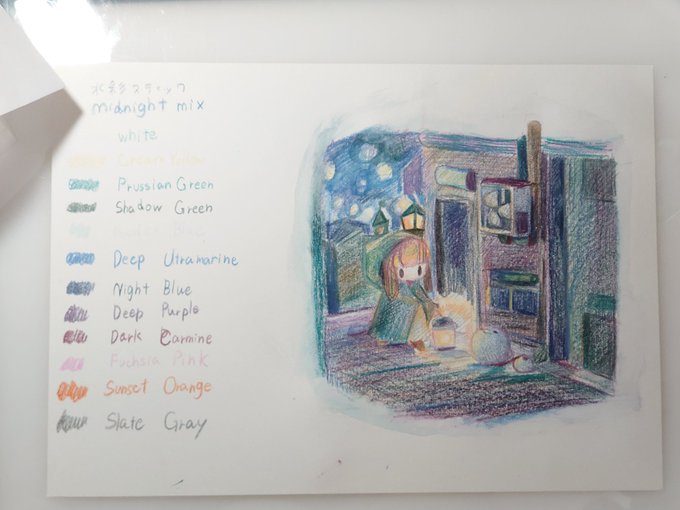 水彩スティック
midnight mix
white
Cream Yellow
Prussian Green
Shadow Green
Deep Utramarine
Night Blue
Deep Purple
Dark Carmine
Fuchsia Pink
Sunset Orange
Slate Gray